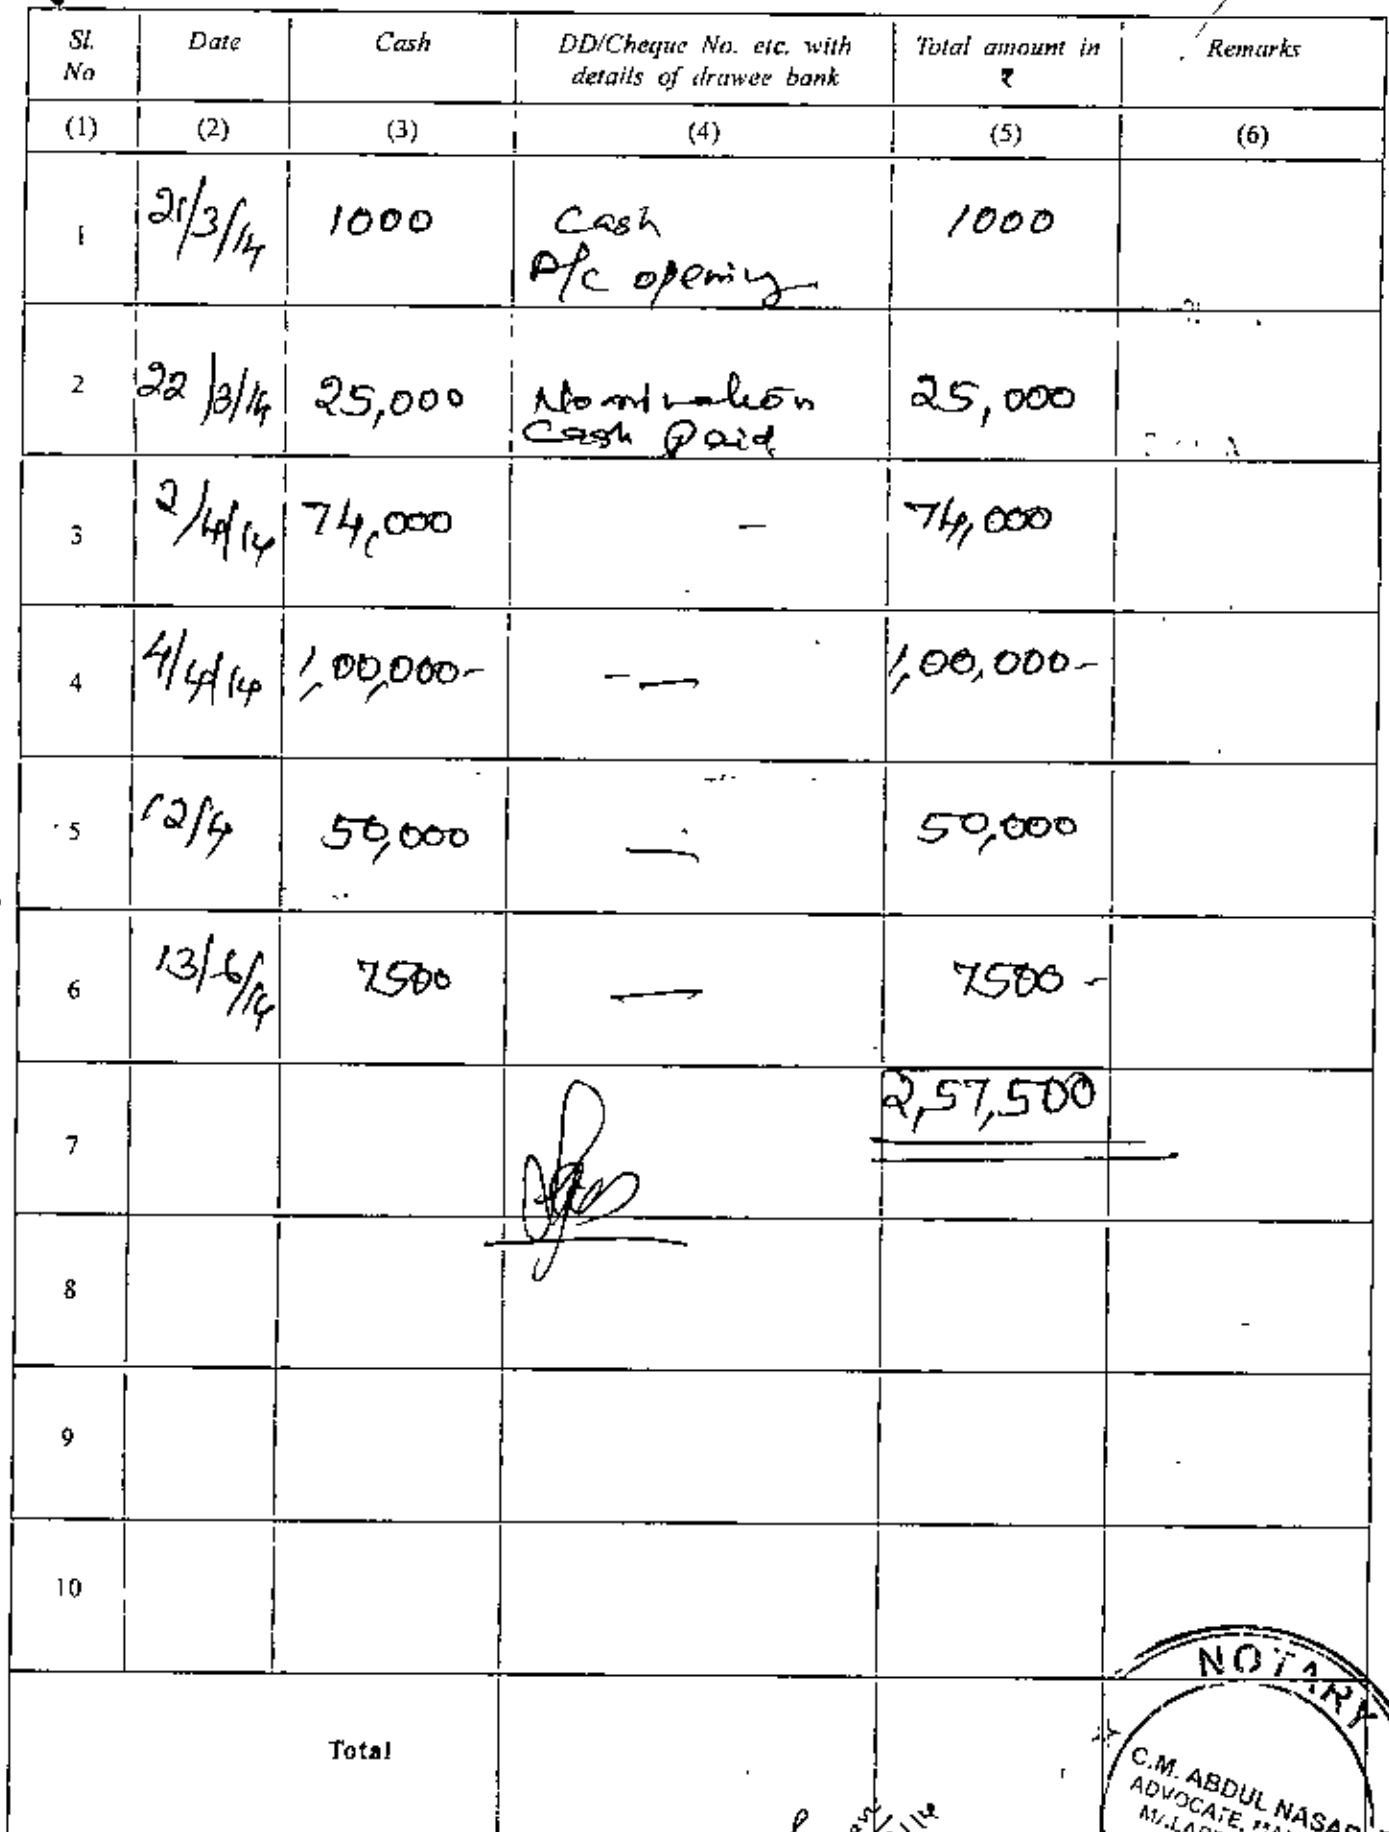 Sl. No Date Cash DD/Cheque No. etc. with details of drawee bank Total amount in ₹ Remarks
(1) (2) (3) (4) (5) (6)
1 21/3/14 1000 Cash A/C opening 1000
2 22/3/14 25,000 Nomination Cash Paid 25,000
3 2/4/14 74,000 – 74,000
4 4/4/14 1,00,000- — 1,00,000-
5 12/4 50,000 — 50,000
6 13/6/14 7500 — 7500 -
7 2,57,500
8
9
10
Total
NOTARY
C.M. ABDUL NASAR
ADVOCATE,